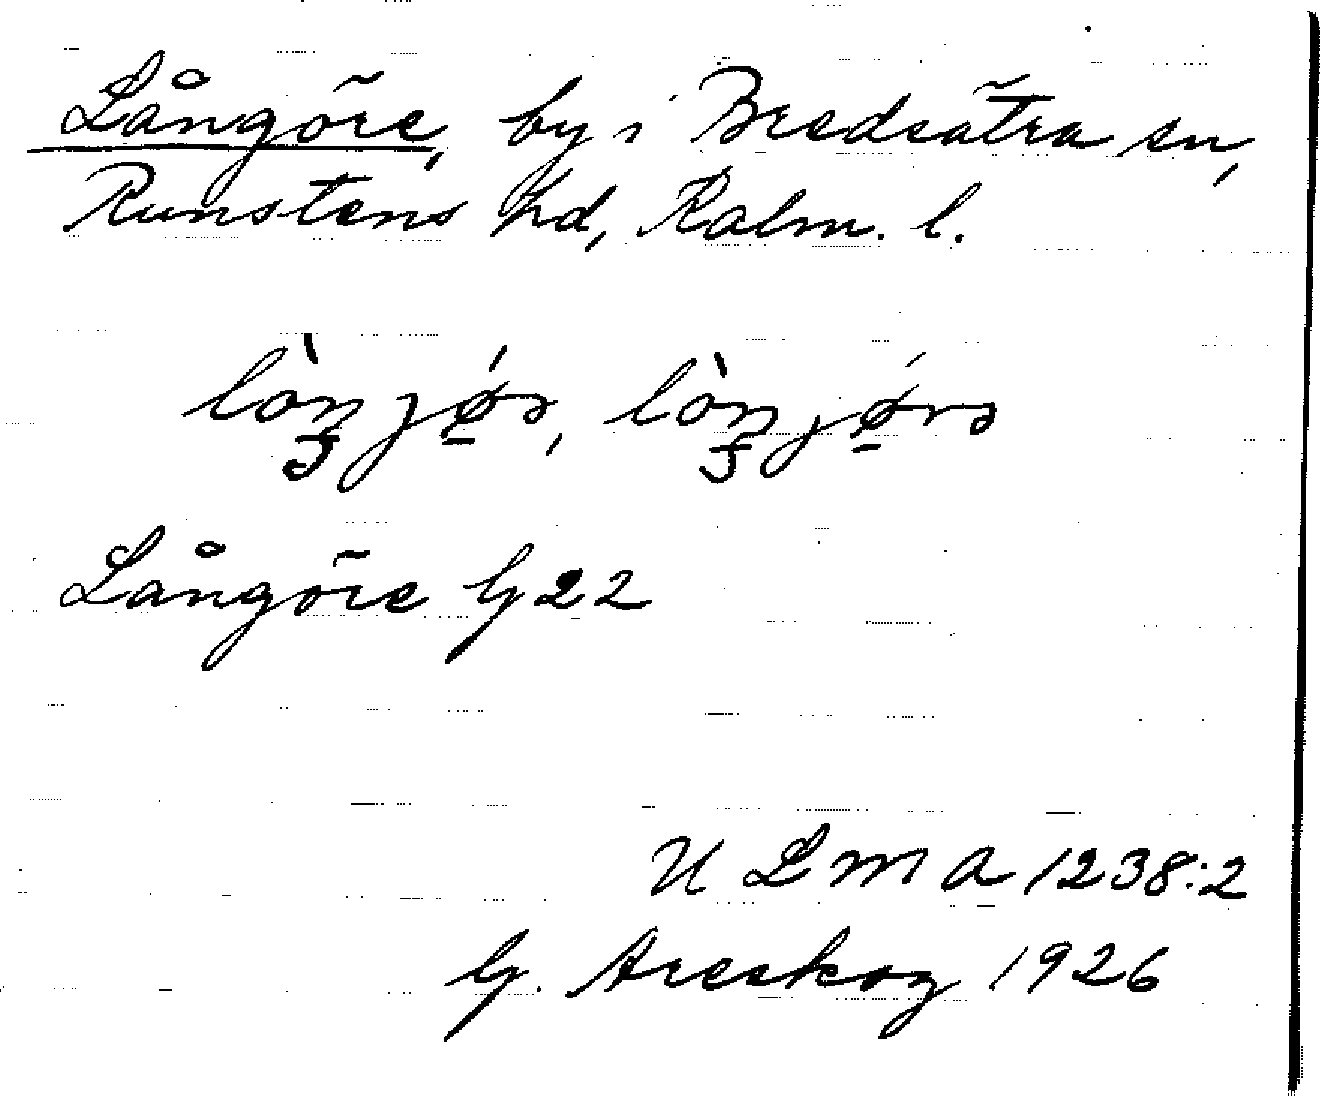 Långöre, by i Bredsätra sn,
Runstens hd, Kalm. l.
Långöre G22
ULMA 1238:2
G. Areskog 1926